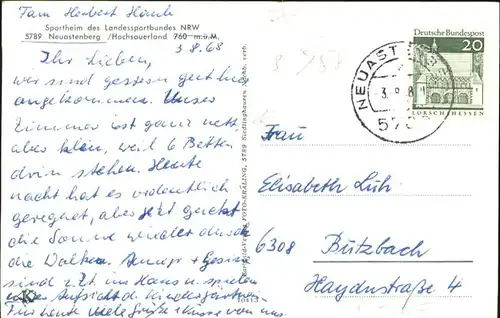 Fam Herbert
Sportheim des Landessportbundes NRW
5789 Neuastenberg /Hochsauerland 760 m.ü.M.
3 8.68
Ihr Lieben,
wir sind gestern gut hier
angekommen. Unser
Zimmer ist ganz nett,
aber klein, weil 6 Betten
drin stehen. Heute
nacht hat es ordentlich
geregnet, aber jetzt guckt
die Sonne wieder durch
die Wolken. +
sind z.Zt. im Haus u. spielen
Aufsicht d. Kindergärtnerin.
Für heute viele Grüße + Küsse von uns
FOTO-KRÄLING, 5789 Siedlinghausen
Deutsche Bundespost
20
LORSCH/HESSEN
NEUAST
3.8
578
Frau
Elisabeth Luh
6308 Butzbach
Haydnstraße 4